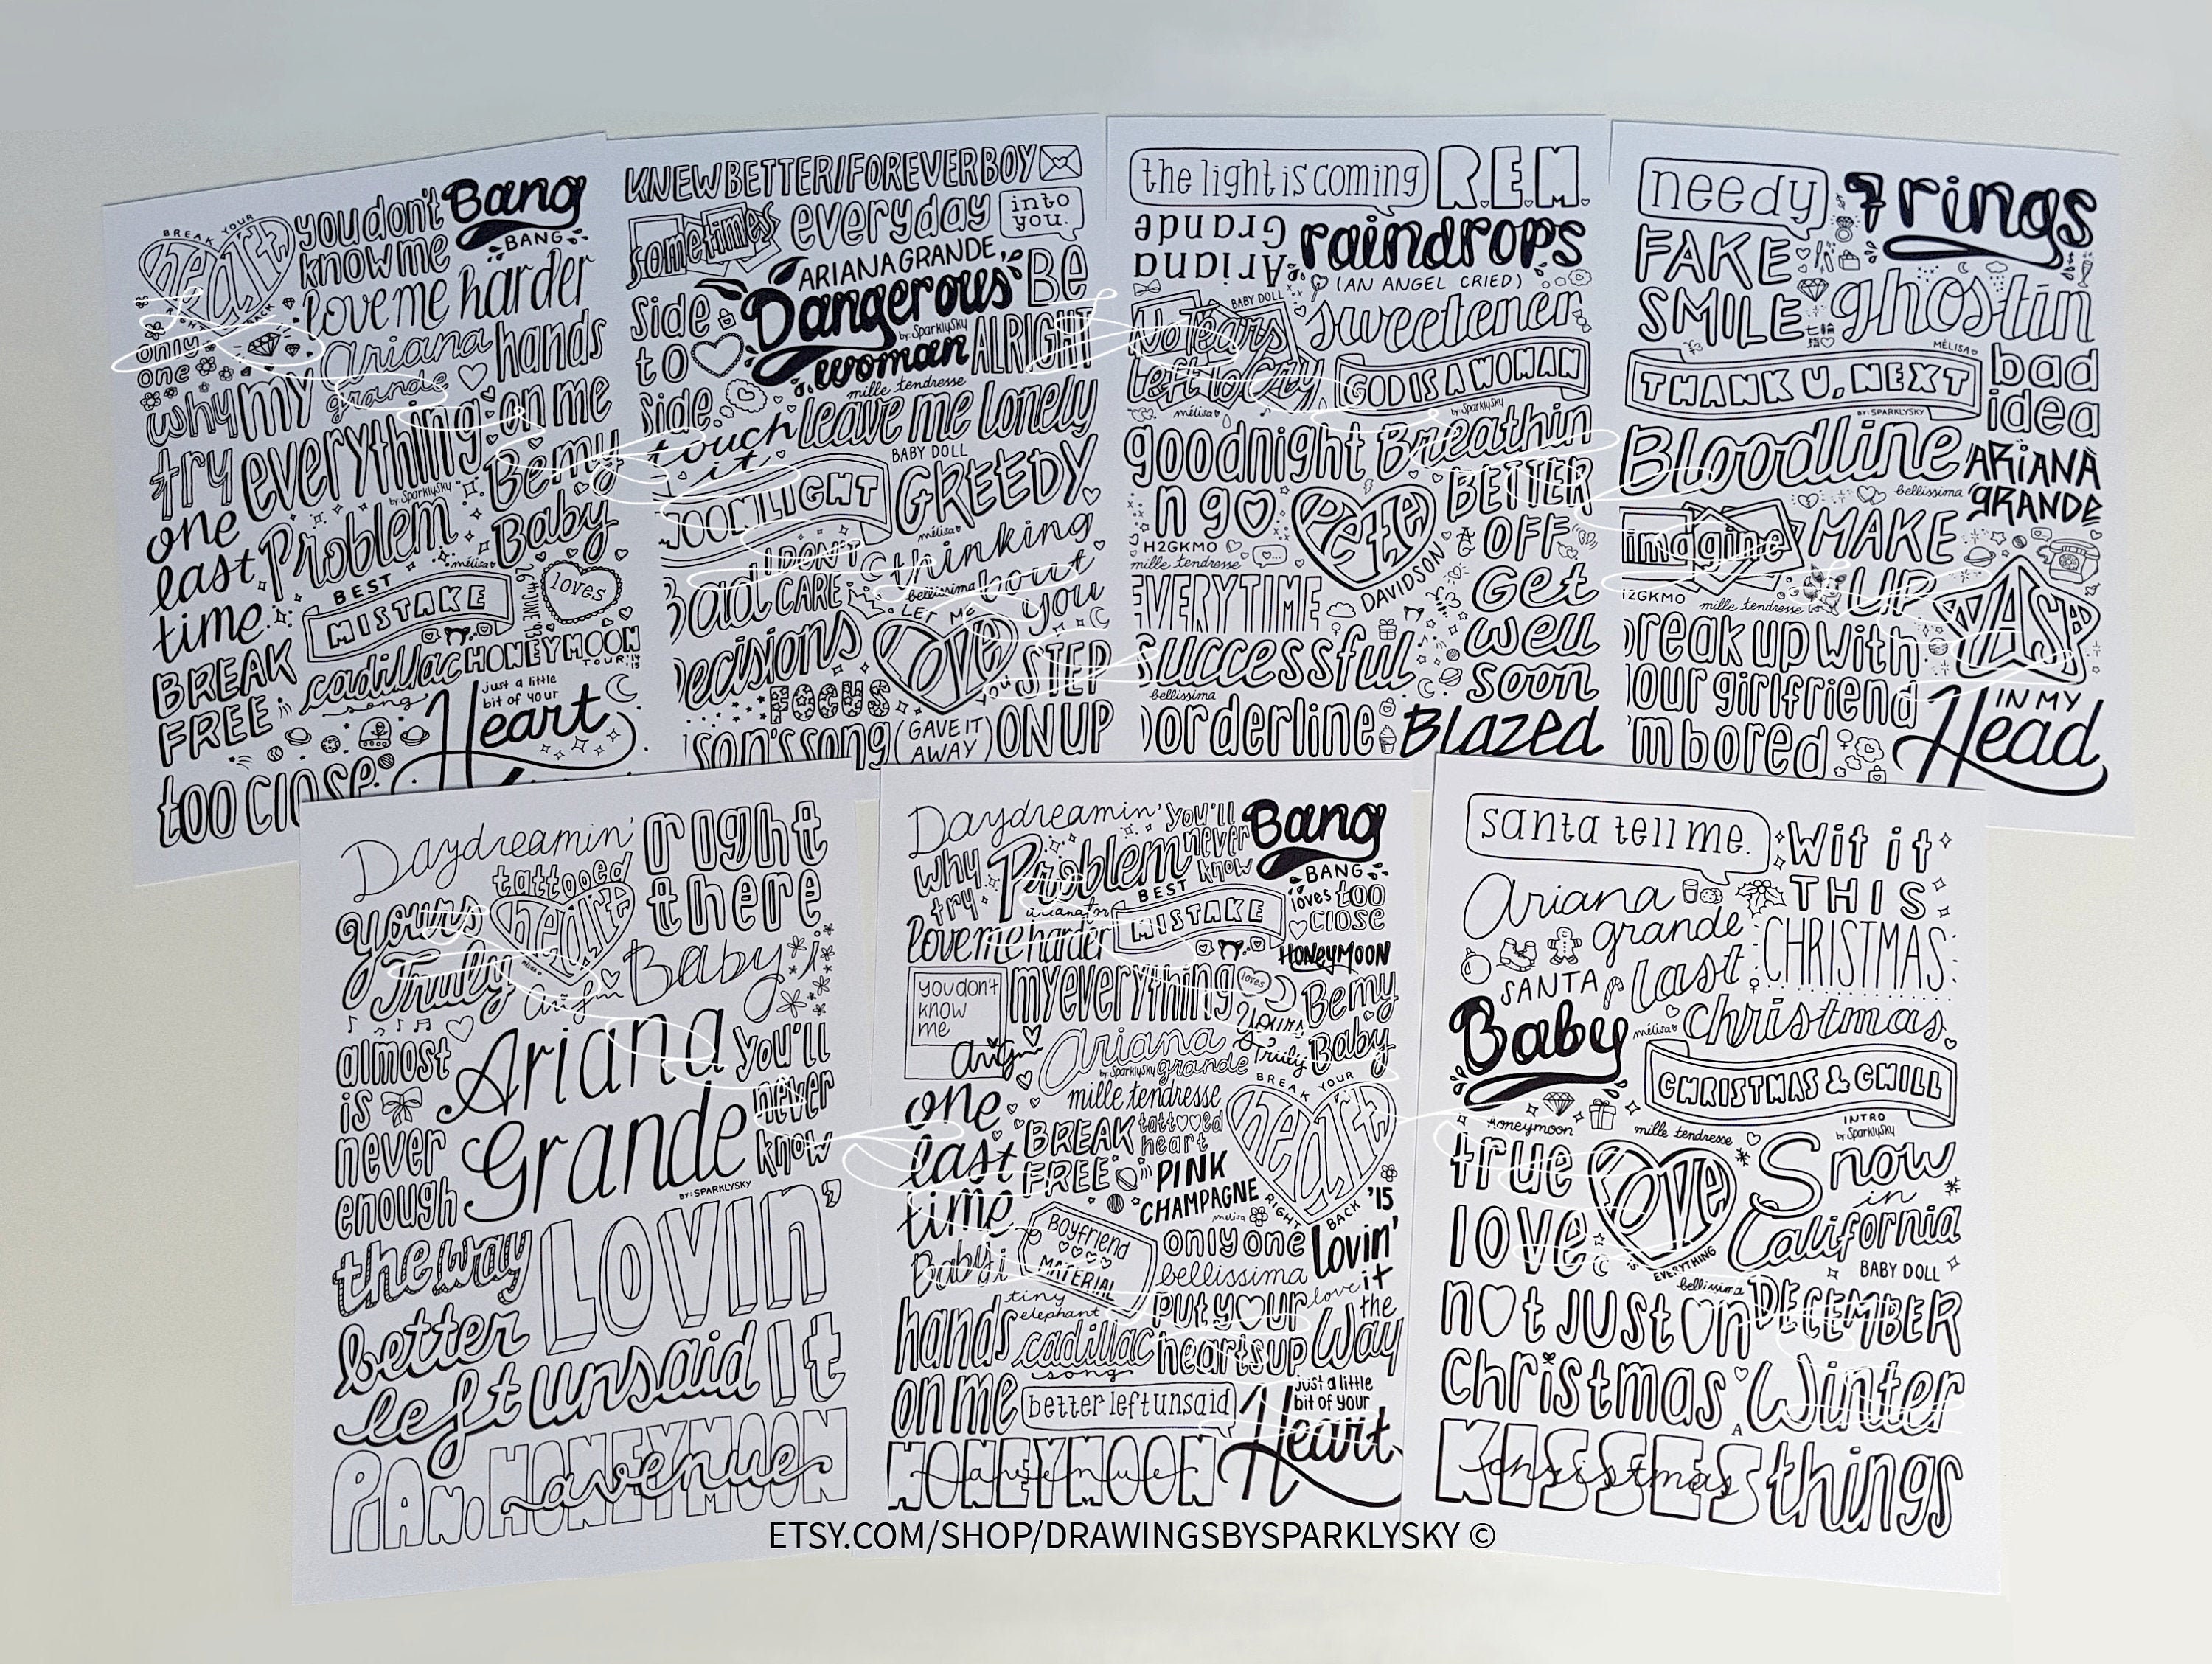 BREAK YOUR
heart
RIGHT BACK
you don't
know me
Bang
BANG
love me harder
only
one
ariana
grande
hands
on me
why
try
my
everything
by SparklySky
Be my
Baby
one
last
time
Problem
mélisa
BEST
MISTAKE
26TH JUNE '93
loves
BREAK
FREE
cadillac
song
HONEYMOON
TOUR '14
15
just a little
bit of your
Heart
too close
KNEW BETTER/FOREVER BOY
sometimes
everyday
into
you.
ARIANA GRANDE
Side
to
side
Dangerous
by SparklySky
woman
Be
ALRIGHT
mille tendresse
touch
it
leave me lonely
BABY DOLL
MOONLIGHT
GREEDY
mélisa
I DON'T
CARE
thinking
bout
you
bellissima
Bad
Decisions
LET ME
Love
you
STEP
ON UP
FOCUS
son's song
(GAVE IT
AWAY)
the light is coming
R.E.M.
Ariana
Grande
raindrops
(AN ANGEL CRIED)
BABY DOLL
No Tears
Left to Cry
mélisa
sweetener
GOD IS A WOMAN
by SparklySky
goodnight
n go
Breathin
BETTER
OFF
Pete
DAVIDSON
H2GKMO
mille tendresse
EVERYTIME
Get
well
soon
successful
bellissima
borderline
Blazed
needy
7 rings
FAKE
SMILE
七輪
指♡
ghostin
MÉLISA
THANK U, NEXT
BY: SPARKLYSKY
bad
idea
Bloodline
bellissima
ARIANA
GRANDE
imagine
MAKE
UP
H2GKMO
mille tendresse
NASA
break up with
your girlfriend
i'm bored
IN MY
Head
Daydreamin'
tattooed
heart
MÉLISA
right
there
yours
Truly
Baby i
almost
is
never
enough
Ariana
Grande
BY: SPARKLYSKY
you'll
never
know
the way
LOVIN'
It
better
left unsaid
PIANO
HONEYMOON
avenue
Daydreamin'
you'll
never
know
Bang
BANG
why
try
Problem
BEST
MISTAKE
loves
too
close
arianator
love me harder
HONEYMOON
you don't
know
me
my everything
loves
Be my
Baby
Ariana
grande
by SparklySky
Yours
Truly
mille tendresse
BREAK YOUR
heart
RIGHT BACK '15
one
last
time
BREAK
FREE
tattooed
heart
PINK
CHAMPAGNE
melisa
Baby i
Boyfriend
MATERIAL
only one
bellissima
Lovin'
it
love
tiny
elephant
hands
on me
cadillac
song
put your
hearts up
the
Way
better left unsaid
just a little
bit of your
Heart
HONEYMOON
avenue
santa tell me.
Wit it
THIS
CHRISTMAS
Ariana
grande
SANTA
Baby
last
christmas
mélisa
CHRISTMAS & CHILL
INTRO
by SparklySky
honeymoon
mille tendresse
true
love
Love
IS EVERYTHING
Snow
in
California
BABY DOLL
bellissima
not just on
christmas
DECEMBER
KISSES
christmas
A
Winter
things
ETSY.COM/SHOP/DRAWINGSBYSPARKLYSKY ©